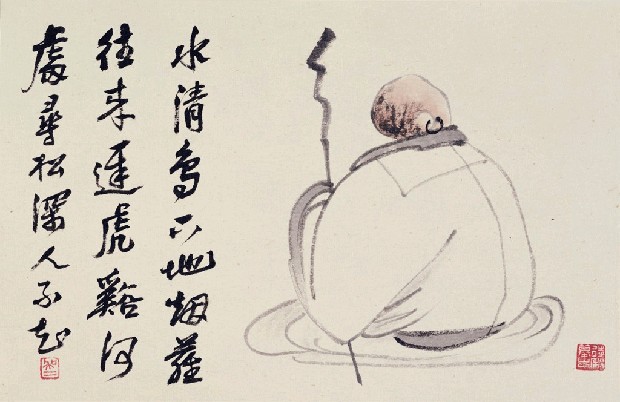 水清鳥地烟蘿
往來遲虎谿何
處尋松深人不知